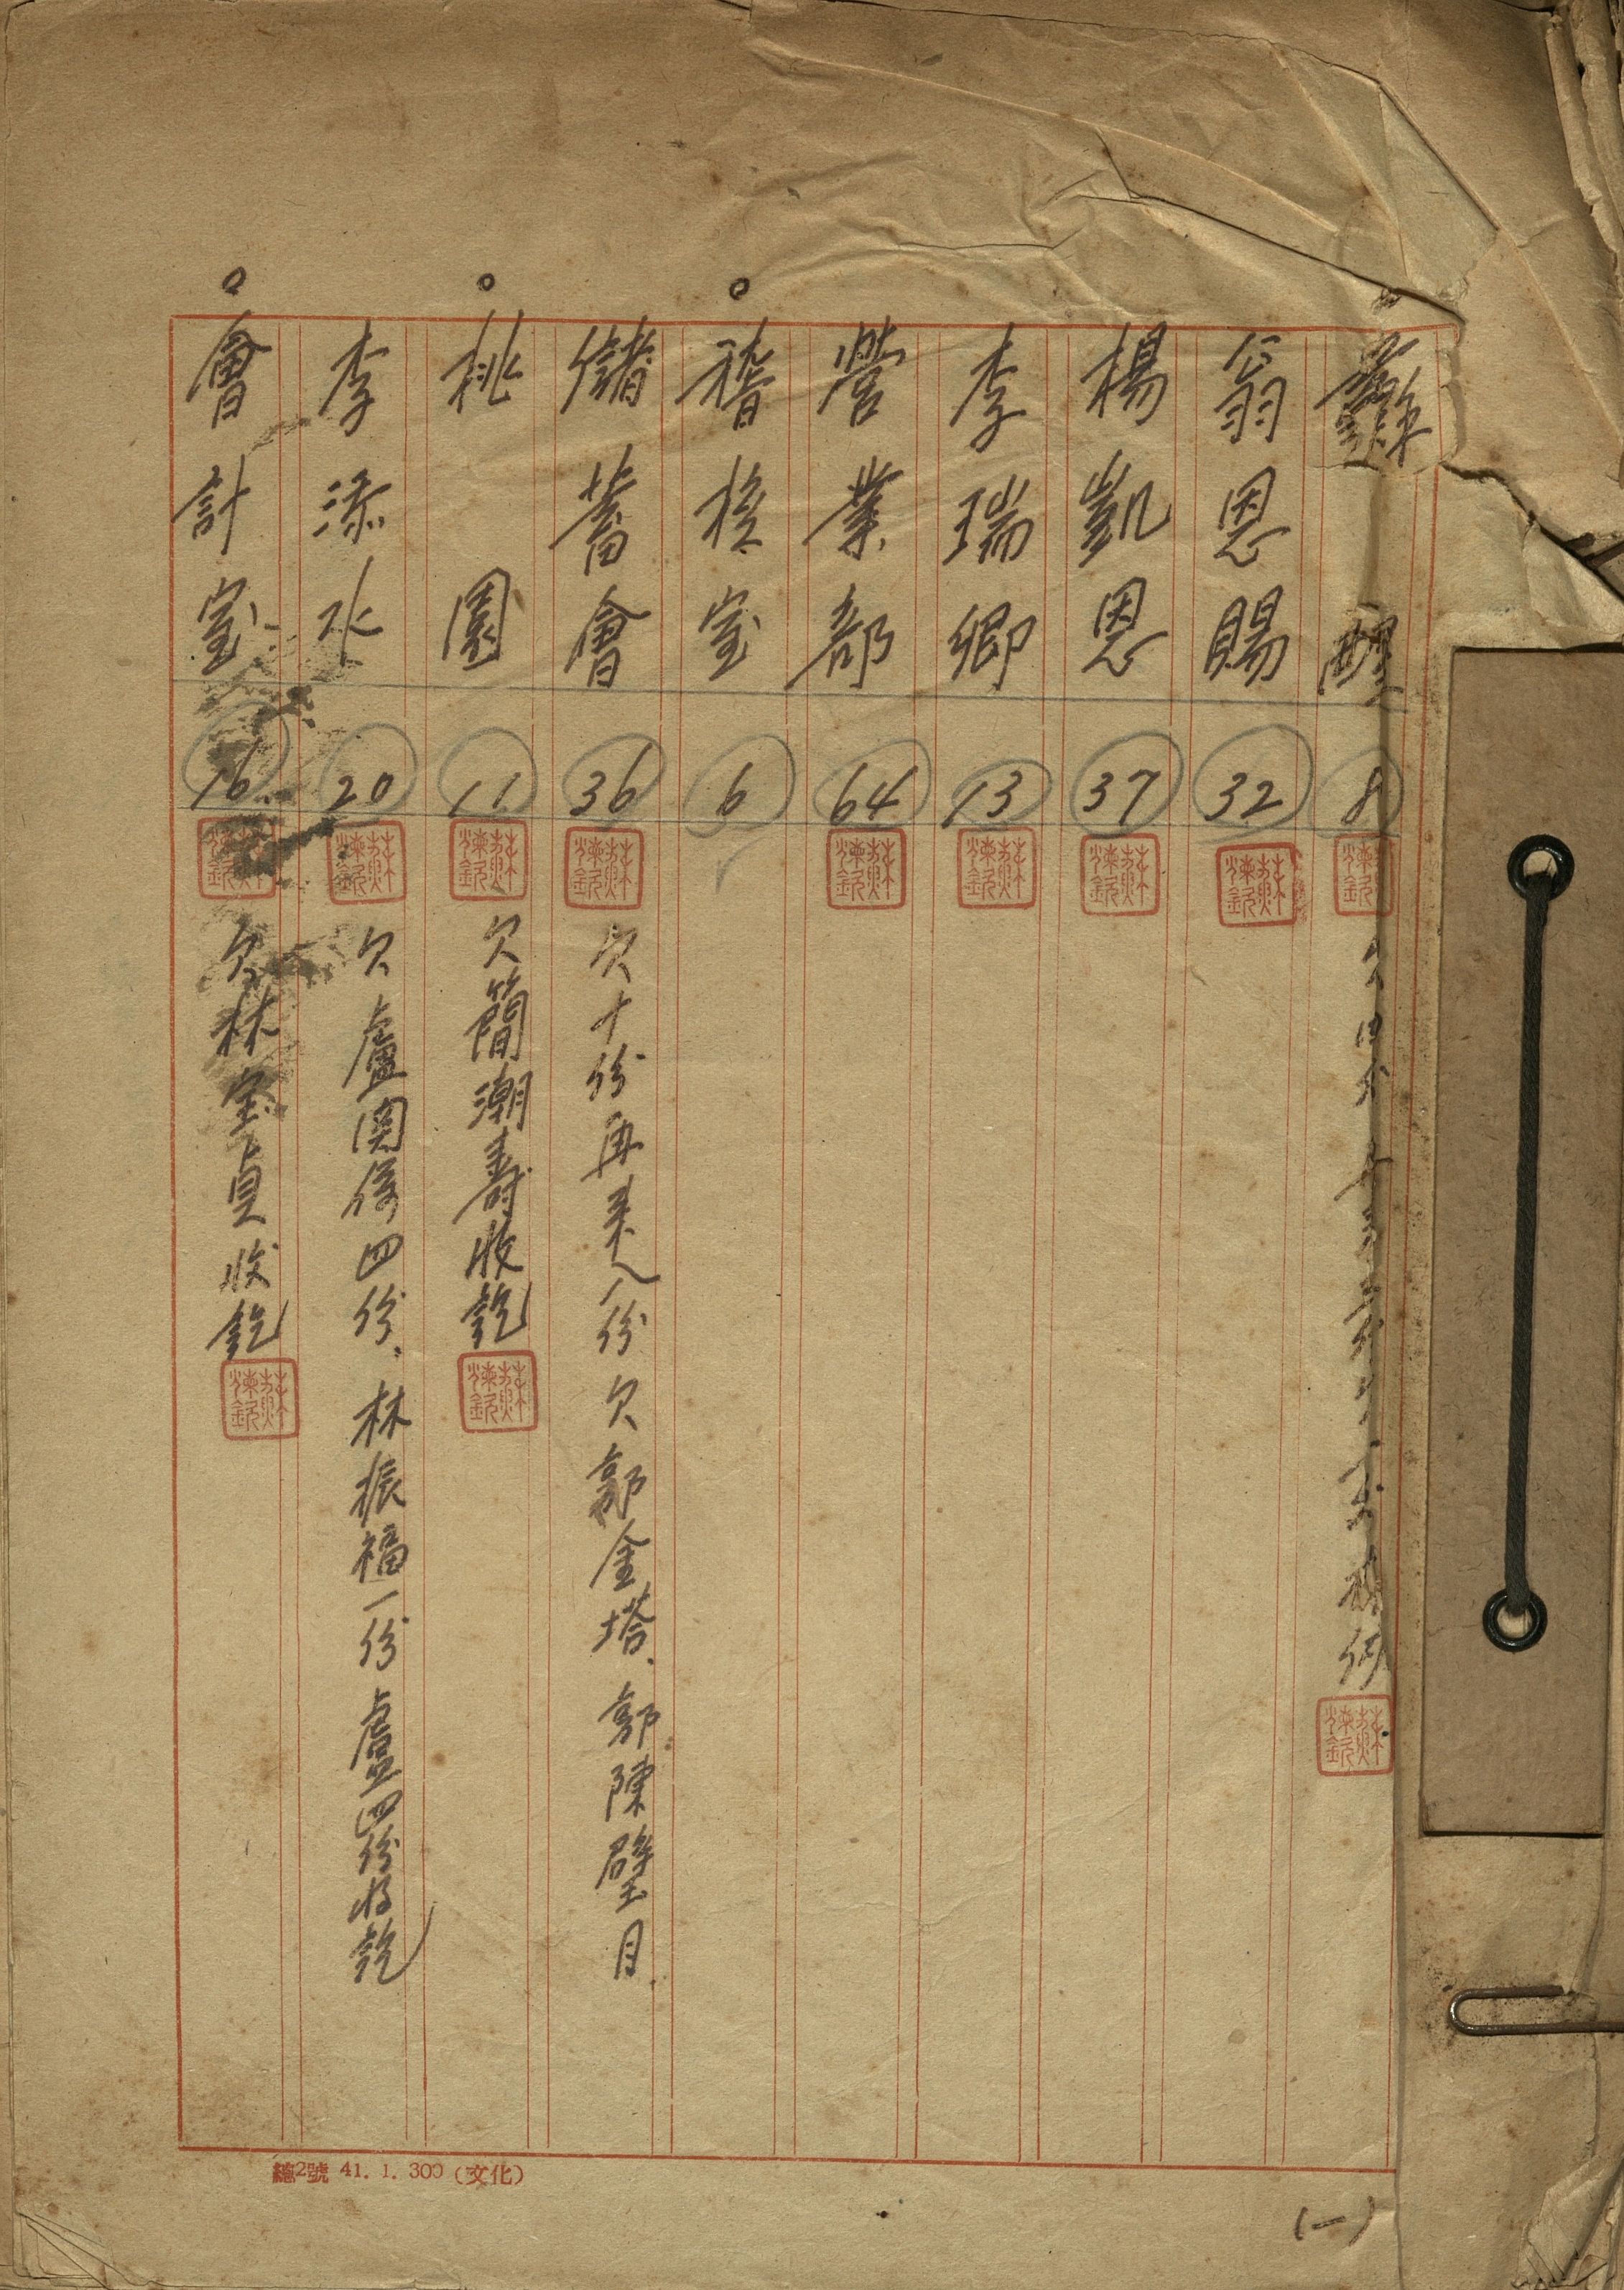 醒
8
翁恩賜
32
楊凱恩
37
李瑞卿
13
營業部
64
稽核室
6
儲蓄會
36
欠十份再來八份欠郭金塔、郭陳璧月
桃園
11
欠簡潮壽收訖
李添水
20
欠盧関係四份、林振福一份盧四份收訖
會計室
16
欠林宝貞收訖
總2號 41. 1. 300 (文化)
(一)